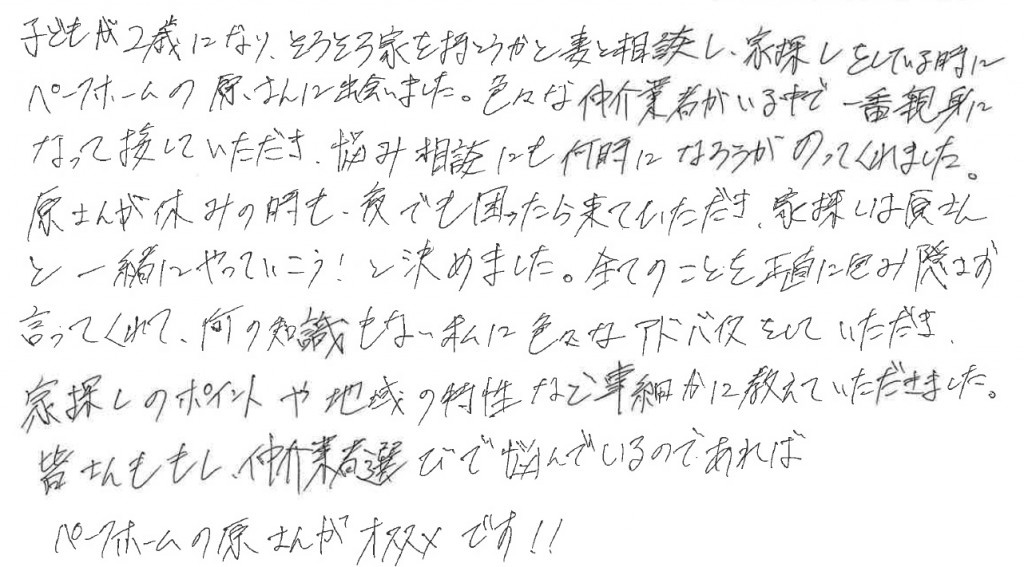 子どもが2歳になり、そろそろ家を持とうかと妻と相談し、家探しをしている時に
ペーフホームの原さんに出会いました。色々な仲介業者がいる中で一番親身に
なって接していただき、悩み相談にも何時になろうがのってくれました。
原さんが休みの時も、夜でも困ったら来ていただき、家探しは原さん
と一緒にやっていこう!と決めました。全てのことを正直に包み隠さず
言ってくれて、何の知識もない私に色々なアドバイスをしていただき、
家探しのポイントや地域の特性など事細かに教えていただきました。
皆さんももし、仲介業者選びで悩んでいるのであれば
ペーフホームの原さんがオススメです!!